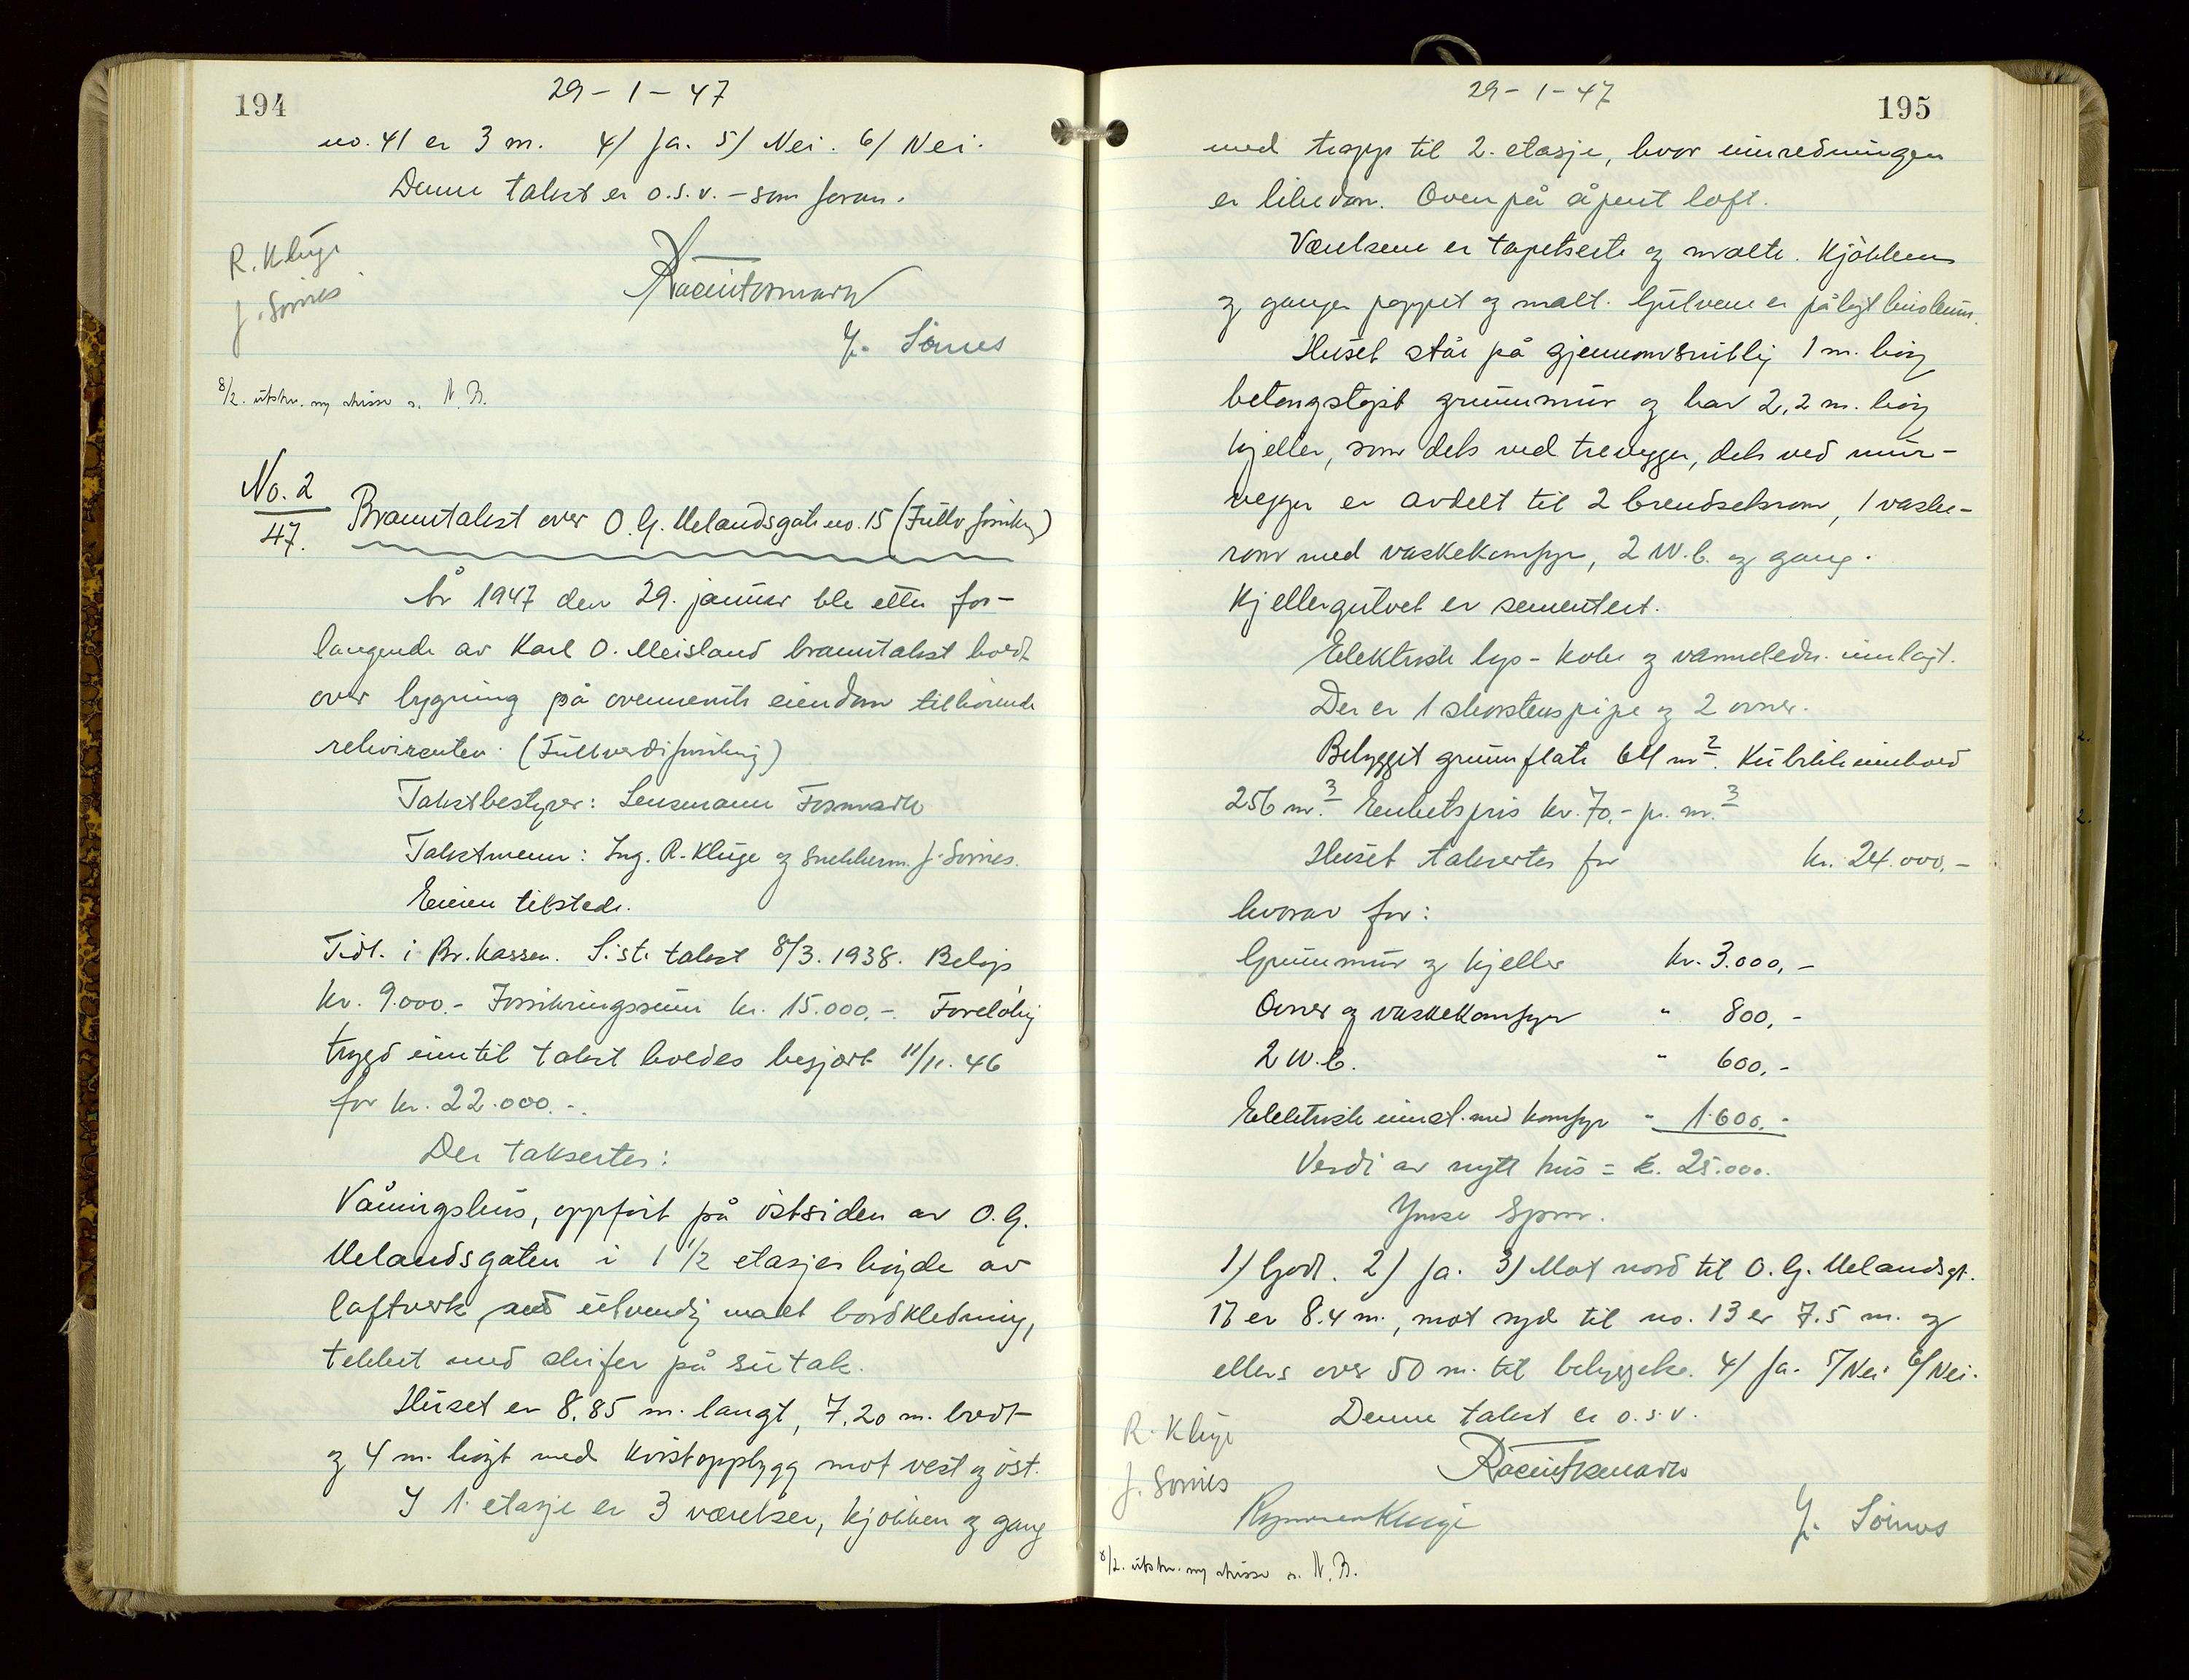 194
29-1-47
no. 41 er 3 m. 4/ Ja. 5/ Nei. 6/ Nei.
Denne takst er o.s.v. - som foran.
R. Kluge
J. Sømes
J. Sømes
8/2. utskr. og skisse s. N. B.
No. 2
47.
Branntakst over O. G. Melandsgate no. 15 (Fullv forsikring)
År 1947 den 29. januar ble etter for-
langende av Karl O. Meisland branntakst holdt
over bygning på ovennevnte eiendom tilhørende
rekvirenten. (Fullverdiforsikring)
Takstbestyrer: Lensmann
Takstmenn: Ing. R. Kluge og snekkerm. J. Sømes.
Eieren tilstede.
Tidl. i Br. kassen. Siste takst 8/3. 1938. Beløp
kr. 9.000.- Forsikringssum kr. 15.000.-. Foreløbig
trygd inntil takst holdes begjært 11/11. 46
for kr. 22.000.-.
Der taksertes:
Våningshus, oppført på østsiden av O. G.
Melandsgaten i 1 1/2 etasjes høyde av
laftverk med utvendig malt bordkledning,
tekket med skifer på sutak.
Huset er 8,85 m. langt, 7,20 m. bredt
og 4 m. høgt med kvistoppbygg mot vest og øst.
I 1. etasje er 3 værelser, kjøkken og gang
29-1-47
195
med trapp til 2. etasje, hvor innredningen
er likedan. Oven på åpent loft.
Værelsene er tapetserte og malte. Kjøkken
og ganger pappet og malt. Gulvene er pålagt linoleum.
Huset står på gjennomsnitlig 1 m. høy
betongstøpt grunnmur og har 2,2 m. høy
kjeller, som dels ved trevegger, dels ved mur-
vegger er avdelt til 2 brendselsrom, 1 vaske-
rom med vaskekomfyr, 2 W.C. og gang.
Kjellergulvet er sementert.
Elektrisk lys- koke og varmeledn. innlagt.
Der er 1 skorstenspipe og 2 ovner.
Bebygget grunnflate 64 m². Kubikkinnhold
256 m.³ Enhetspris kr. 70.- pr. m.³
Huset taksertes for kr. 24.000,-
hvorav for:
Grunnmur og kjeller kr. 3.000,-
Ovner og vaskekomfyr " 800,-
2 W.C. " 600,-
Elektrisk innst. med komfyr " 1.600,-
Verdi av nytt hus = k. 25.000.
Ymse Spm.
1) Godt. 2) Ja. 3) Mot nord til O. G. Melandsgt.
17 er 8.4 m., mot syd til no. 13 er 7.5 m. og
ellers over 50 m. til bebyggelse. 4/ Ja. 5/ Nei. 6/ Nei.
Denne takst er o.s.v.
R. Kluge
J. Sømes
J. Sømes
8/2. utskr. og skisse s. N. B.